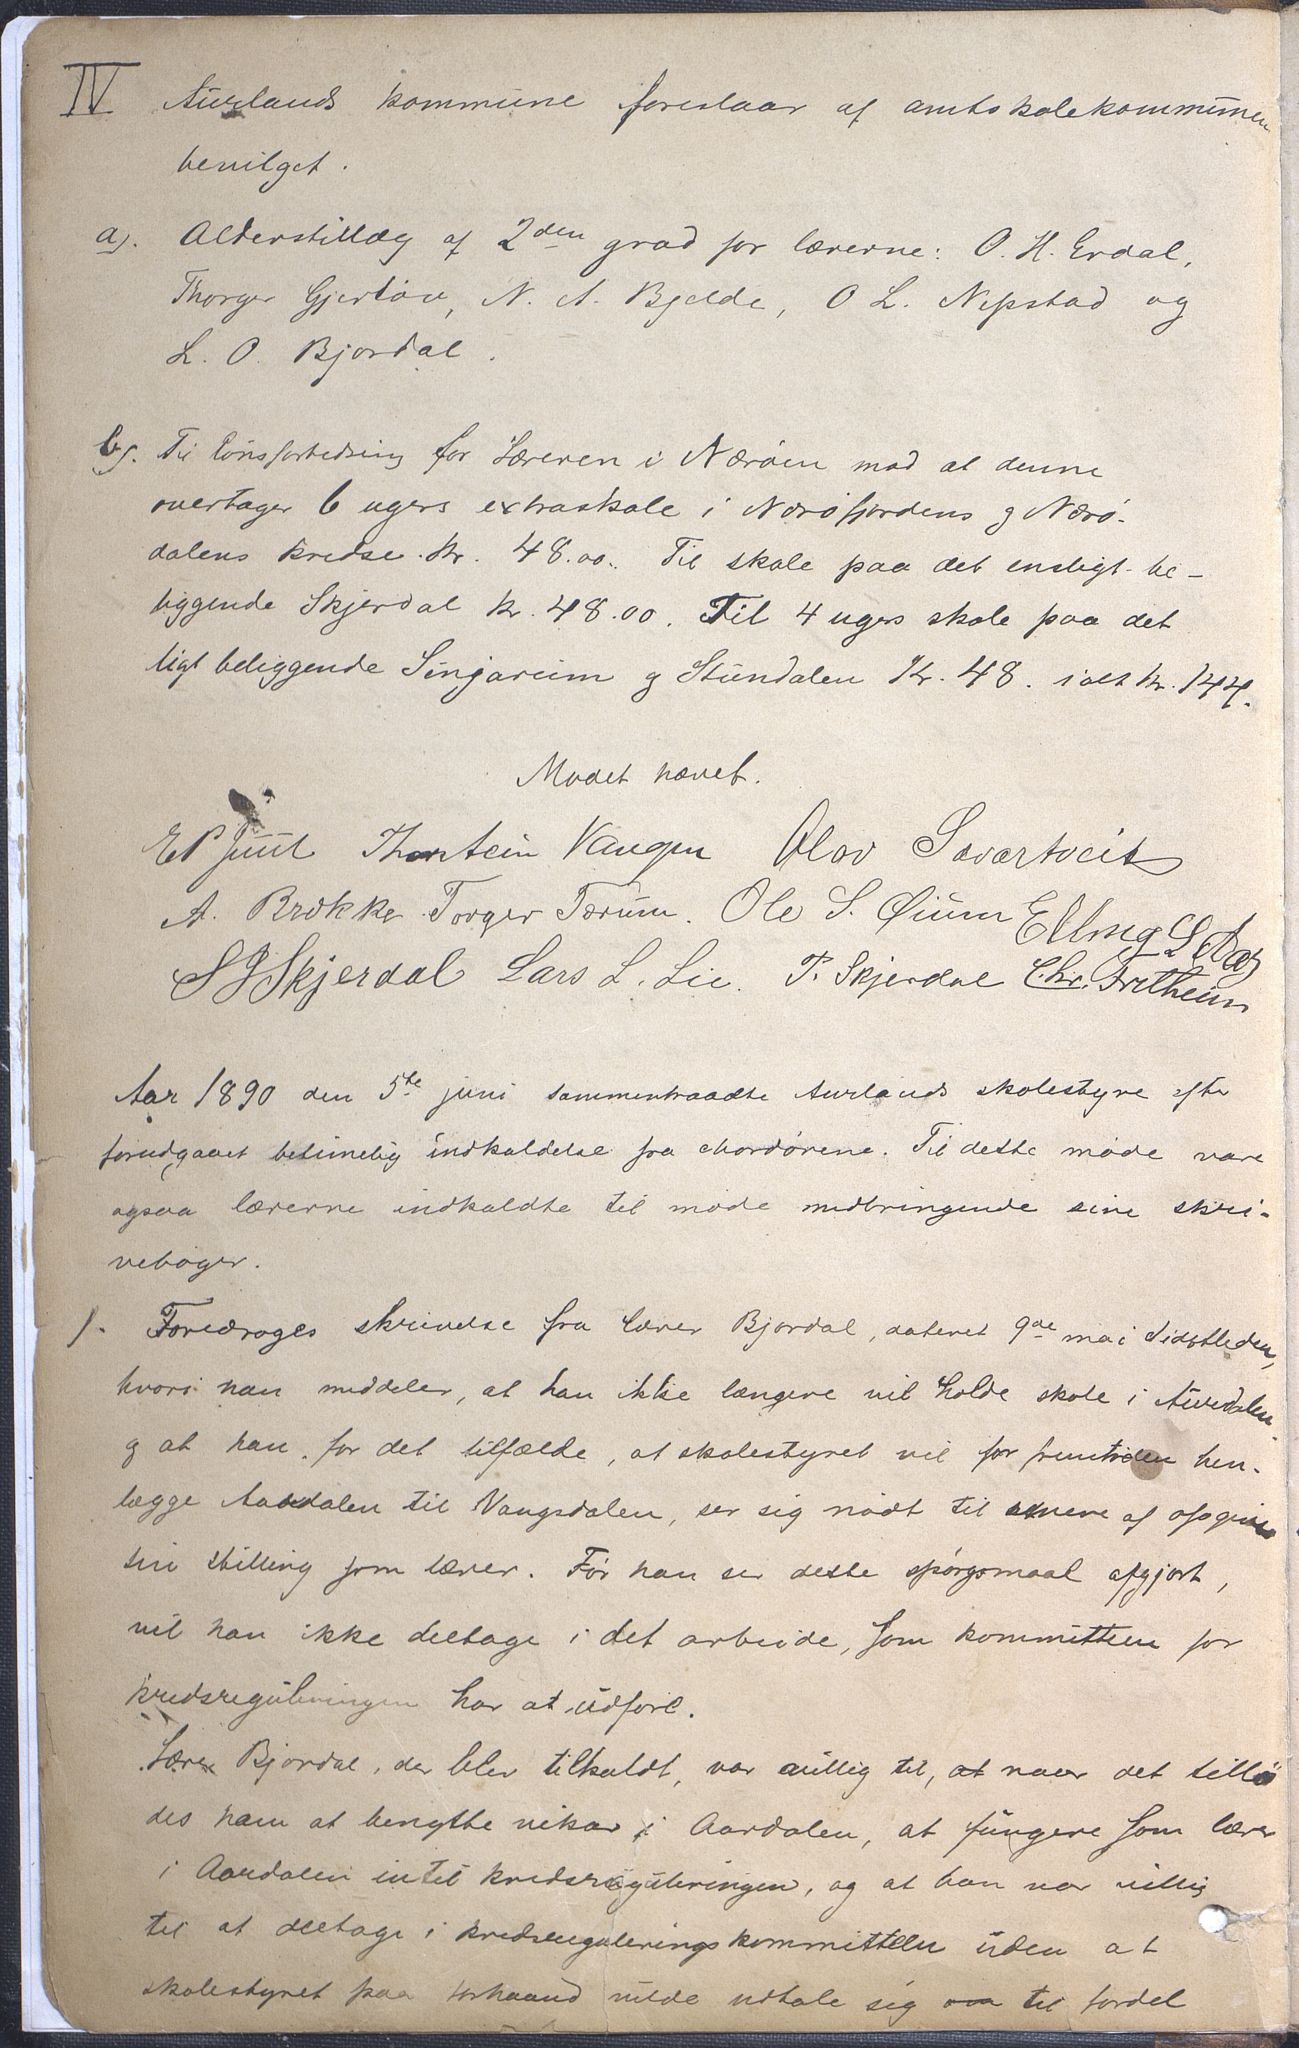 IV Aurlands kommune foreslaar af amtskolekommunen
bevilget.
a). Alderstillæg af 2den grad for lærerne: O. H. Erdal,
Thorger Gjerløw, N. A. Bjelde, O L. Nipstad og
L. O. Bjordal.
b). Til lønsforbedring for Læreren i Nærøen mod at denne
overtager 6 ugers extraskole i Nærøfjordens og Nærø-
dalens kredse. Kr. 48.00. Til skole paa det ensligt be-
liggende Skjerdal kr. 48.00. Til 4 ugers skole paa det
ligt beliggende Sinjarum og Stundalen Kr. 48. ialt kr. 144.
Mødet hævet.
E P Juul Thorstein Vangen Olav Sværtveit
A. Brekke. Torger Terum. Ole S. Øium
S J Skjerdal Lars L. Lie. T. Skjerdal Chr. Fretheim
Aar 1890 den 5te juni sammentraadte Aurlands skolestyre efter
forudgaaet betimelig indkaldelse fra ordføreren. Til dette møde vare
ogsaa lærerne indkaldte til møde medbringende sine skri-
vebøger.
1. Foredroges skrivelse fra lærer Bjordal, dateret 9de mai sidstleden,
hvori han meddeler, at han ikke længere vil holde skole i Aurdalen
og at han, for det tilfælde, at skolestyret vil for fremtiden hen-
lægge Aardalen til Vangsdalen, ser sig nødt til at
sin stilling som lærer. Før han ser dette spørgsmaal afgjort,
vil han ikke deltage i det arbeide, som kommitteen for
kredsreguleringen har at udføre.
Lærer Bjordal, der blev tilkaldt, var villig til, at naar det tillo-
des ham at benytte vikar i Aardalen, at fungere som lærer
i Aardalen intil kredsreguleringen, og at han var villig
til at deltage i kredsreguleringskommitteen uden at
skolestyret paa forhaand vilde udtale sig til fordel